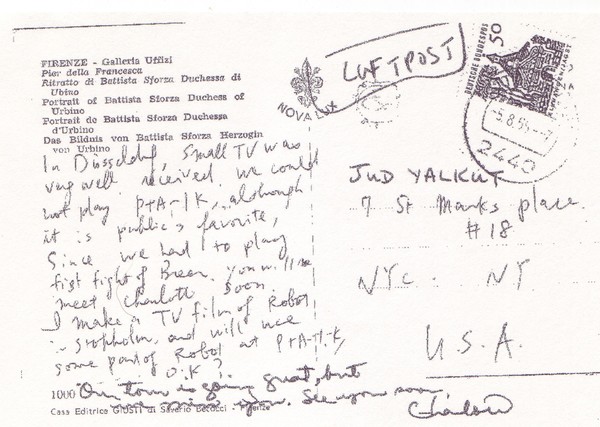 FIRENZE - Galleria Uffizi
Pier della Francesca
Ritratto di Battista Sforza Duchessa di
Urbino
Portrait of Battista Sforza Duchess of
Urbino
Portrait de Battista Sforza Duchessa
d'Urbino
Das Bildnis von Battista Sforza Herzogin
von Urbino
In Düsseldorf, Small TV was
very well received. We could
not play P+A-I-K, although
it is public's favorite,
Since we had to play
fist fight of Brecn. You will
meet Charlotte soon.
I make a TV film of Robot
in Stopholm, and will use
some part of Robot at P+A-I-K,
O.K?
Our tour is going great, but
we miss you. See you soon
Charlotte
1000
Casa Editrice GIUSTI di Saverio Becocci - Firenze
NOVALUX
LUFTPOST
DEUTSCHE BUNDESPOST
50
2440
JUD YALKUT
7 St Marks place
#18
NYC. NY
U.S.A.